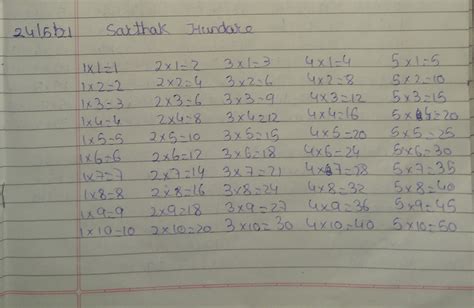 24/5/21 Sarthak Hundare
1x1=1 2x1=2 3x1=3 4x1=4 5x1=5
1x2=2 2x2=4 3x2=6 4x2=8 5x2=10
1x3=3 2x3=6 3x3=9 4x3=12 5x3=15
1x4=4 2x4=8 3x4=12 4x4=16 5x4=20
1x5=5 2x5=10 3x5=15 4x5=20 5x5=25
1x6=6 2x6=12 3x6=18 4x6=24 5x6=30
1x7=7 2x7=14 3x7=21 4x7=28 5x7=35
1x8=8 2x8=16 3x8=24 4x8=32 5x8=40
1x9=9 2x9=18 3x9=27 4x9=36 5x9=45
1x10=10 2x10=20 3x10=30 4x10=40 5x10=50